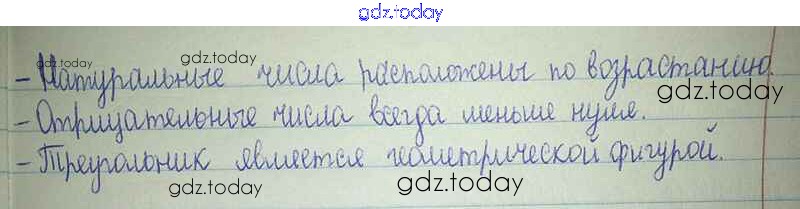 gdz.today
gdz.today
gdz.today
- Натуральные числа расположены по возрастанию.
gdz.today
- Отрицательные числа всегда меньше нуля.
gdz.today
- Треугольник является геометрической фигурой.
gdz.today
gdz.today